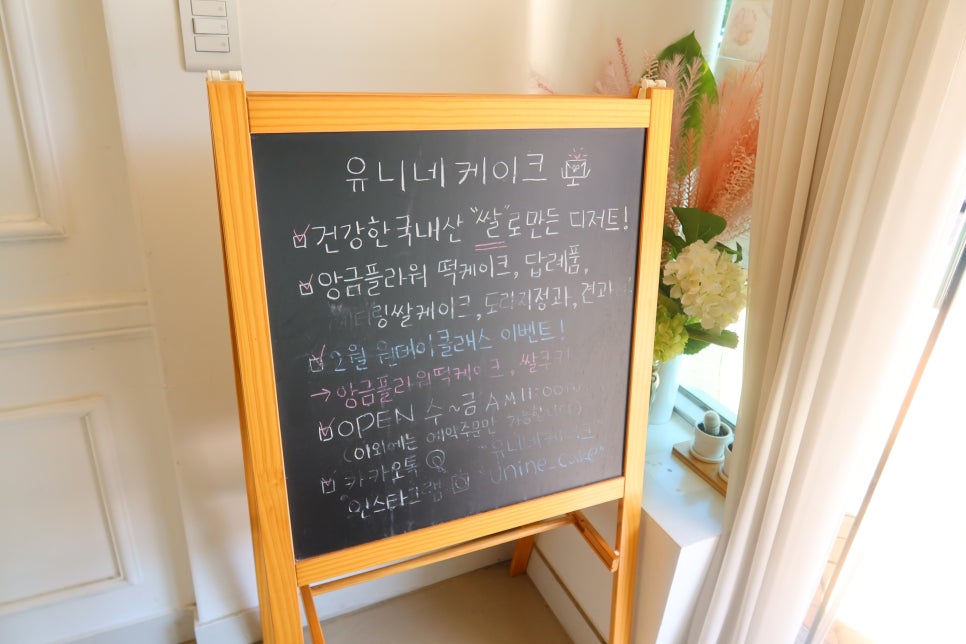 유니네케이크
건강한국내산 "쌀"로만든 디저트!
앙금플라워 떡케이크, 답례품,
쌀케이크, 도라지정과, 견과
2월 원데이클래스 이벤트!
→ 앙금플라워떡케이크, 쌀쿠키
OPEN 수~금 AM11:00
(이외에는 예약주문만 가능합니다)
카카오톡 Q "유니네케이크"
인스타그램 unine_cake